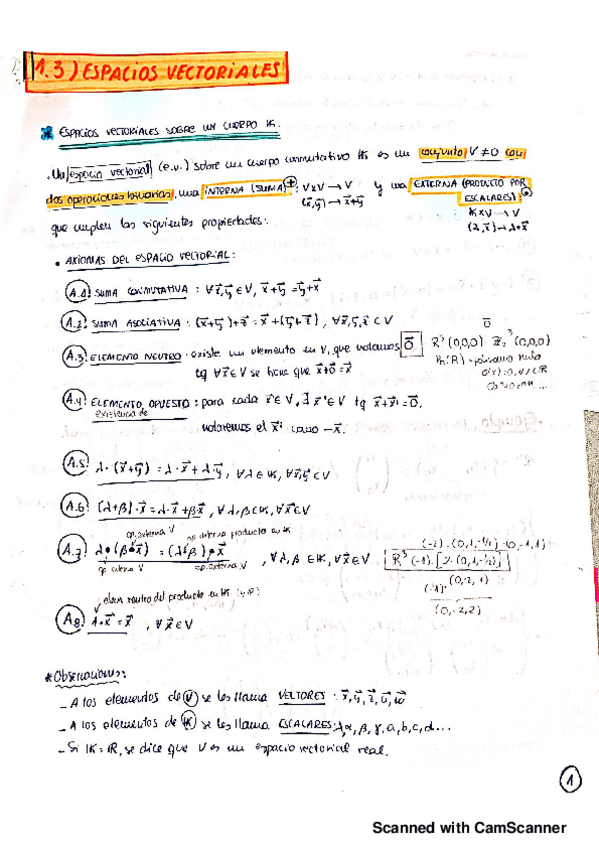 1.3) ESPACIOS VECTORIALES
* ESPACIOS VECTORIALES SOBRE UN CUERPO K.
· Un espacio vectorial (e.v.) sobre un cuerpo conmutativo K es un conjunto V ≠ 0 con
dos operaciones binarias, una INTERNA (SUMA) + : V x V → V y una EXTERNA (PRODUCTO POR
(x⃗, y⃗) → x⃗+y⃗ ESCALARES):
que cumplen las siguientes propiedades: K x V → V
(λ, x⃗) → λ·x⃗
• AXIOMAS DEL ESPACIO VECTORIAL:
A.1. SUMA CONMUTATIVA : ∀x⃗,y⃗ ∈ V, x⃗+y⃗ = y⃗+x⃗
A.2. SUMA ASOCIATIVA : (x⃗+y⃗)+z⃗ = x⃗+(y⃗+z⃗), ∀x⃗,y⃗,z⃗ ∈ V
A.3. ELEMENTO NEUTRO : existe un elemento en V, que notamos 0⃗. R³(0,0,0) (0,0,0)
tq ∀x⃗ ∈ V se tiene que x⃗+0⃗=x⃗
A.4. ELEMENTO OPUESTO : para cada x⃗ ∈ V, ∃ x⃗' ∈ V tq x⃗+x⃗'=0⃗.
existencia de
notaremos el x⃗' como -x⃗.
A.5. λ·(x⃗+y⃗) = λ·x⃗ + λ·y⃗, ∀λ ∈ K, ∀x⃗,y⃗ ∈ V
A.6. (λ+β)·x⃗ = λ·x⃗ + β·x⃗, ∀λ,β ∈ K, ∀x⃗ ∈ V
op. externa V op interna producto en K
A.7. λ·(β·x⃗) = (λ·β)·x⃗, ∀λ,β ∈ K, ∀x⃗ ∈ V
op externa V op. externa V
(-2)·(0,1,-1/2)
R³ (-1)·[2·(0,1,-1/2)]
(-1)· (0,2,-1)
(0,-2,1)
elem neutro del producto en K
A.8. 1·x⃗ = x⃗, ∀x⃗ ∈ V
* Observaciones:
- A los elementos de V se les llama VECTORES : x⃗, y⃗, z⃗, u⃗, w⃗
- A los elementos de K se les llama ESCALARES: λ, α, β, γ, a, b, c, d...
- Si K = R, se dice que V es un espacio vectorial real.
1
Scanned with CamScanner